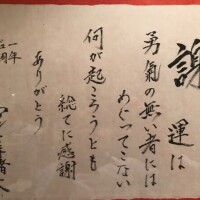 謝
運は
勇氣の無い者には
めぐってこない
何が起ころうとも
総てに感謝
ありがとう